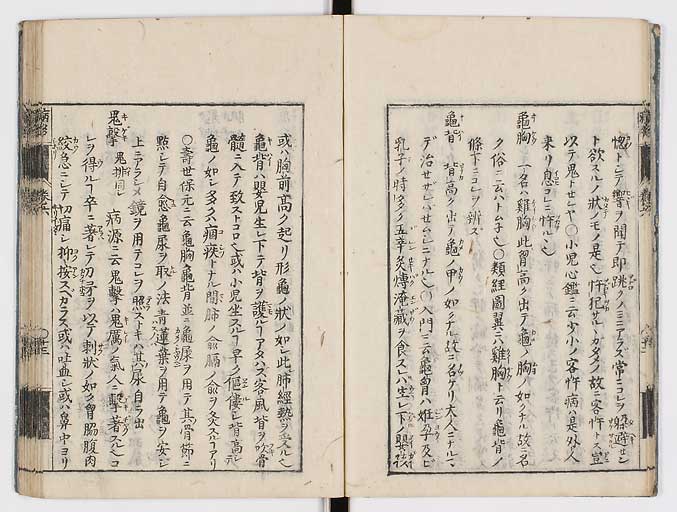 惚トシテ響ヲ聞テ即跳ク人ミニアラズ常ニコレヲ躱避セン
ト欲スルノ狀ノモノ是忤犯サルヽガタメノ故ニ客忤トス豈
以テ鬼トセンヤ〇小児心鑑ニ云少小ノ客忤病ハ是外人
來リ息コレニ忤ル
龜胸 一名ハ雞胸此胷高ク出テ龜ノ胸ノ如クナル故ニ名
ク俗ニ云ハトム子〇類經圖翼ニハ雞胸ト云リ龜背ノ
條下ニコレヲ辨ズ
龜背 背高ク出テ龜ノ甲ノ如クナル故ニ名ケリ大人ニナルマ
デ治セザレバセムシニナル〇入門ニ云龜胷ハ姙孕及ビ
乳子ノ時多ク五辛炙煿淹藏ヲ食スレハ生レ下ノ嬰孩
或ハ胸前高ク起リ形龜ノ狀ノ如シ此肺經熱ヲ受ル
龜背ハ嬰児生レ下テ背ヲ護ルアタハズ客風背ヲ吹骨
髓ニ入テ致ストコロ或ハ小児坐スルヿ早ク傴僂シ背高シ
龜ノ如シ多クハ痼疾トナル間肺ノ兪膈ノ兪ヲ灸スルヿアリ
〇壽世保元ニ云龜胸龜背並ニ龜尿ヲ用テ其骨節ニ
點シテ自愈龜尿ヲ取ノ法青蓮葉ヲ用テ龜ヲ安シ
上ニアラシメ鏡ヲ用テコレヲ照ストキハ其尿自ラ出
鬼擊 鬼排同シ 病源ニ云鬼擊ハ鬼厲ノ氣人ニ擊著スル
レヲ得ルヿ卒ニ著シテ刀矛ヲ以テ刺狀ノ如ク胷脇腹肉
絞急ニシテ切痛シ抑按スベカラズ或ハ吐血シ或ハ鼻中ヨリ